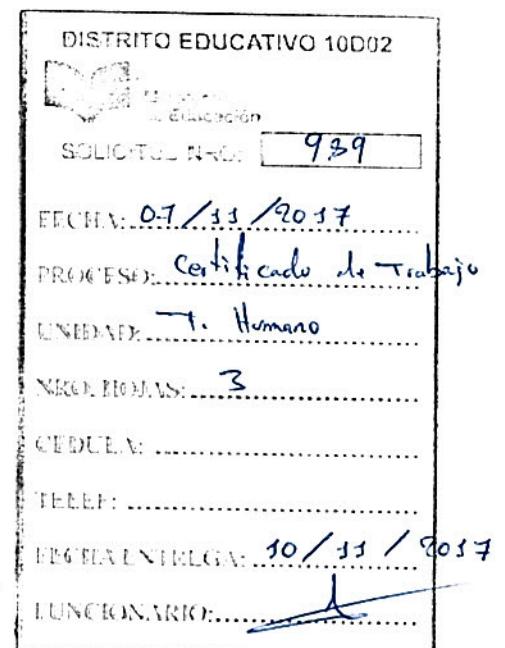 DISTRITO EDUCATIVO 10D02
Educación
SOLICITUD NRO: 989
FECHA: 07/11/2017
PROCESO: Certificado de Trabajo
UNIDAD: T. Humano
NRO. HOJAS: 3
CEDULA:
TELEF:
FECHA ENTREGA: 10/11/2017
FUNCIONARIO: